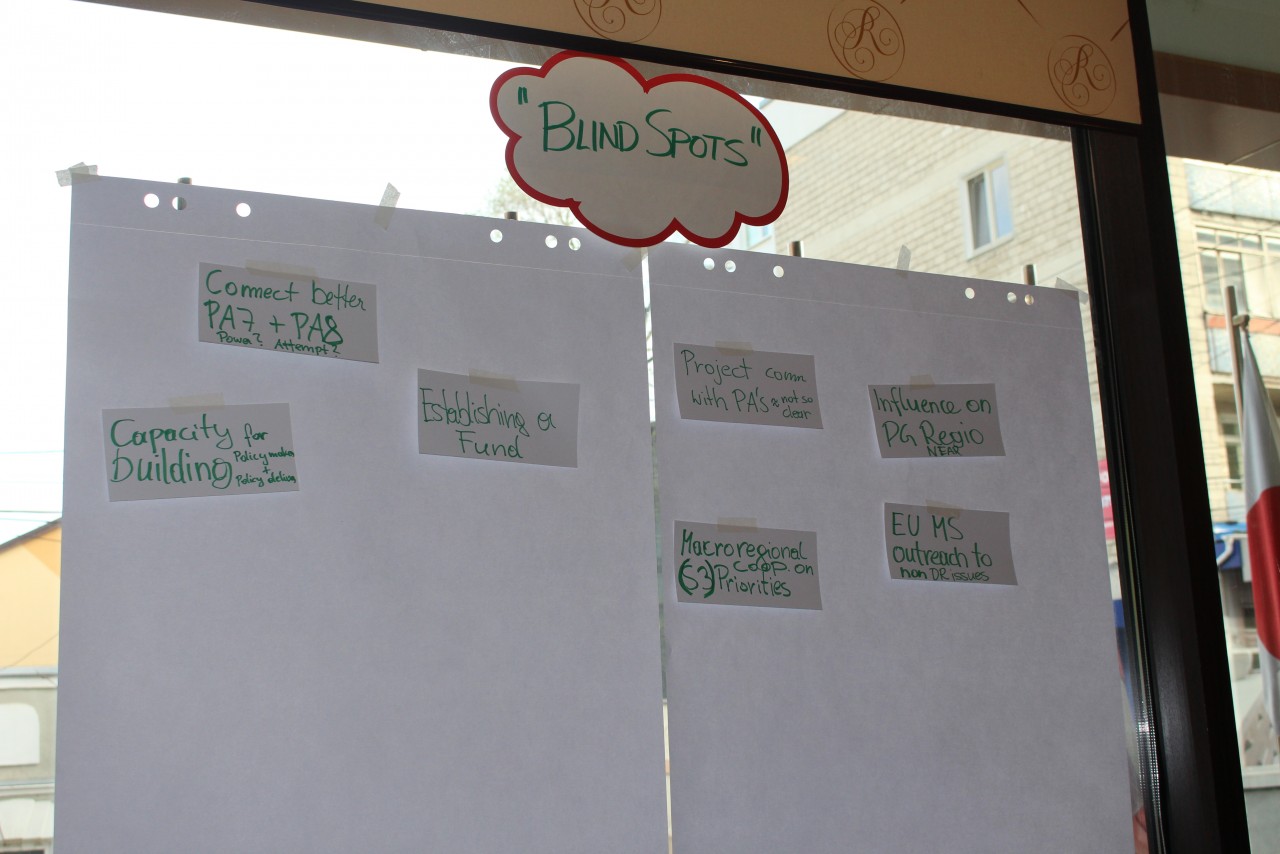 "BLIND SPOTS"
Connect better
PA7 + PA8
Power? Attempt?
Capacity for
building Policy
+
Policy
Establishing a
Fund
Project comm
with PA's not so
clear
Influence on
DG Regio
NEAR
Macroregional
(S3) coop. on
Priorities
EU MS
outreach to
non DR issues
R
R
R